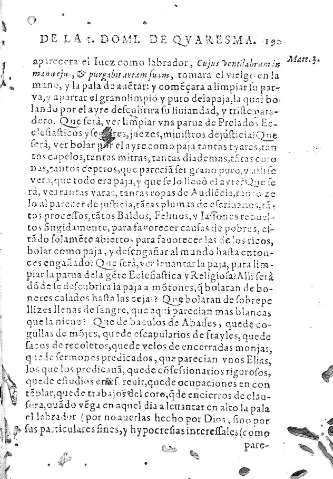 DE LA 1. DOMI. DE QVARESMA. 190
aparecera el Iuez como labrador, Cuius ventilabrum in
manu eju, & purgabit aream suam, tomara el vielgo en la
mano, y la pala de auētar: y começara a limpiar su par-
va, y apartar el grano limpio y puro de la paja, la qual bo-
lando por el ayre descubrira su liuiandad, y triste para-
dero. Que será, ver limpiar vna parua de Prelados Ec-
clesiasticos y juezes, ministros de justicia! Que
será, ver bolar por el ayre como paja tantas tyaras, tan
tos capelos, tantas mitras, tantas diademas, tātas coro
nas, tantos ceptros, que parecia ser grano puro, y alli se
vera, que todo era paja, y que se lo lleuò el ayre! Que se
rà, ver tantas varas, tantas ropas de Audiēcia, tanto ze
lo al parecer de justicia, tātas plumas de escriuanos, tā
tos processos, tātos Baldos, Felinos, y Iassones rebuel-
tos fingidamente, para fauorecer causas de pobres, es-
tādo solamēte abierto, para fauorecer las de los ricos,
bolar como paja, y desengañar al mundo hasta enton-
ces engañado! Que será, ver leuantar la pala, para lim-
piar la parua de la gēte Eclesiastica y Religiosa! Alli será
dōde se descubrira la paja a mōtones, q̄ bolaran de bo-
netes calados hasta las ceja! Que bolaran de sobrepe
llizes llenas de sangre, que aqui parecian mas blancas
que la nieue! Que de baculos de Abades, quede co-
gullas de mōjes, quede escapularios de frayles, quede
sacos de recoletos, quede velos de encerradas monjas,
que de sermones predicados, que parecian vnos Elias,
los que los predicauā, quede cōfesionarios rigorosos,
quede estudios en reuir, quede ocupaciones en con
tēplar, quede trabajos del coro, q̄de encierros de clau-
sura, quādo vēga en aquel dia a leuantar en alto la pala
el labrador (por no auerlas hecho por Dios, sino por
sus particulares fines, y hypocresias interessales (como
pare-
Mat. 3.